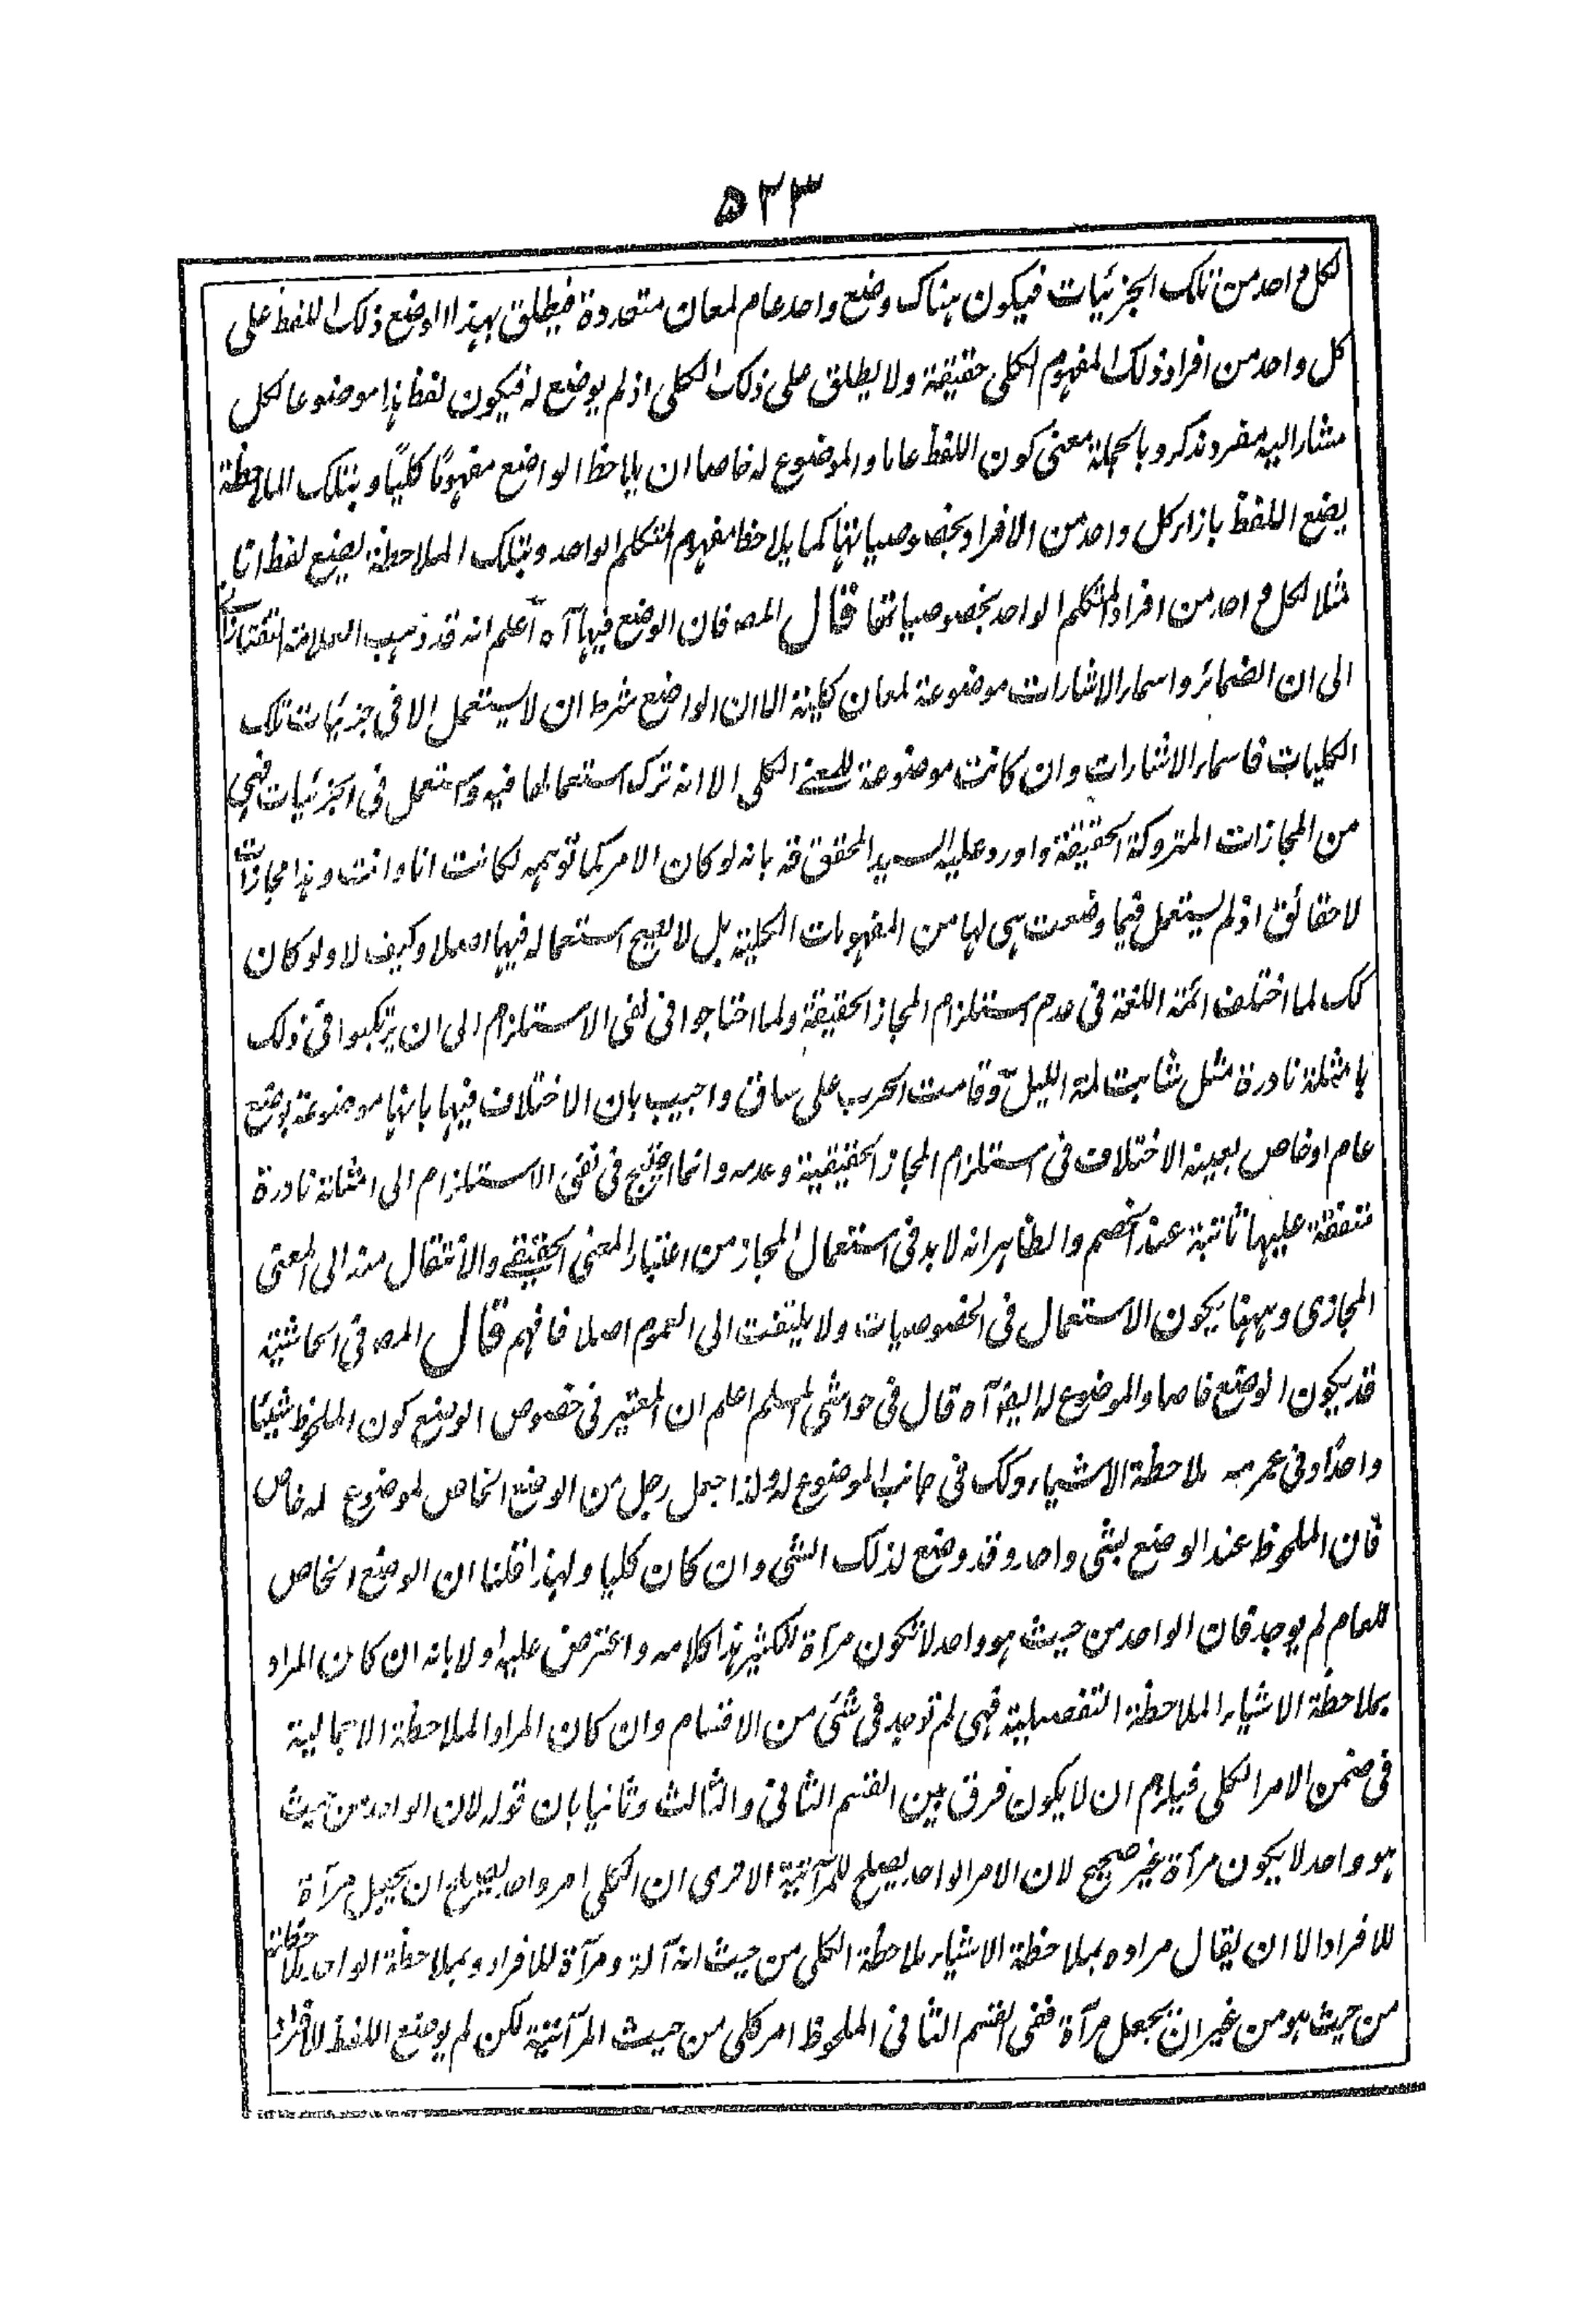 ۵۲۳
لكل واحد من تلك الجزئيات فيكون هناك وضع واحد عام لمعان متعددة فيطلق بهذا الوضع ذلك اللفظ على
كل واحد من افراد ذلك المفهوم الكلى حقيقة ولا يطلق على ذلك الكلى اذ لم يوضع له فيكون لفظ هذا موضوعا لكل
مشار اليه مفرد مذكر و بالجملة معنى كون اللفظ عاما و الموضوع له خاصا ان يلاحظ الواضع مفهومًا كليًا و بتلك الملاحظة
يضع اللفظ بازاء كل واحد من الافراد بخصوصياتها كما يلاحظ مفهوم المتكلم الواحد و بتلك الملاحظة يضع لفظ انا
مثلا لكل واحد من افراد المتكلم الواحد بخصوصياتها قال المصـ فان الوضع فيها آه اعلم انه قد ذهب العلامة التفتازانى
الى ان الضمائر و اسماء الاشارات موضوعة لمعان كلية الا ان الواضع شرط ان لا يستعمل الا فى جزئيات تلك
الكليات فاسماء الاشارات و ان كانت موضوعة للمعنى الكلى الا انه ترك استعمالها فيه و يستعمل فى الجزئيات فهى
من المجازات المتروكة الحقيقة و اورد عليه السيد المحقق قد بانه لو كان الامر كما توهمه لكانت انا و انت و هذا مجازات
لا حقائق اذ لم يستعمل فيما وضعت هى لها من المفهومات الكلية بل لا يصح استعماله فيها اصلا و كيف لا و لو كان
كك لما اختلف ائمة اللغة فى عدم استلزام المجاز الحقيقة و لما احتاجوا فى نفى الاستلزام الى ان يرتكبوا فى ذلك
بامثلة نادرة مثل شابت لمة الليل و قامت الحرب على ساق و اجيب بان الاختلاف فيها بانها موضوعة بوضع
عام او خاص بعينه الاختلاف فى استلزام المجاز الحقيقية و عدمه و انما احتيج فى نفى الاستلزام الى امثلة نادرة
متفقة عليها ثابتة عند الخصم و الظاهر انه لا بد فى استعمال المجاز من اعتبار المعنى الحقيقى و الانتقال منه الى المعنى
المجازى و ههنا يكون الاستعمال فى الخصوصيات و لا يلتفت الى العموم اصلا فافهم قال المصـ فى الحاشية
قد يكون الوضع خاصا و الموضوع له ايضا آه قال فى حواشى المسلم اعلم ان المعتبر فى خصوص الوضع كون الملحوظ شيئًا
واحدًا و فى عمومه ملاحظة الاشياء و كك فى جانب الموضوع له و لذا جعل رجل من الوضع الخاص لموضوع له خاص
فان الملحوظ عند الوضع لشئ واحد و قد وضع لذلك الشئ و ان كان كليا و لهذا قلنا ان الوضع الخاص
للعام لم يوجد فان الواحد من حيث هو واحد لا تكون مرآة للكثير هذا كلامه و اعترض عليه اولا بانه ان كان المراد
بملاحظة الاشياء الملاحظة التفصيلية فهى لم توجد فى شئ من الاقسام و ان كان المراد الملاحظة الاجمالية
فى ضمن الامر الكلى فيلزم ان لا يكون فرق بين القسم الثانى و الثالث و ثانيا بان قوله لان الواحد من حيث
هو واحد لا يكون مرآة غير صحيح لان الامر الواحد يصلح للمرآتية الا ترى ان الكلى امر واحد يصلح ان يجعل مرآة
للافراد الا ان يقال مراده بملاحظة الاشياء ملاحظة الكلى من حيث انه آلة و مرآة للافراد و بملاحظة الواحد ملاحظة
من حيث هو من غير ان يجعل مرآة ففى القسم الثانى الملحوظ امر كلى من حيث المرآتية لكن لم يوضع اللفظ للافراد